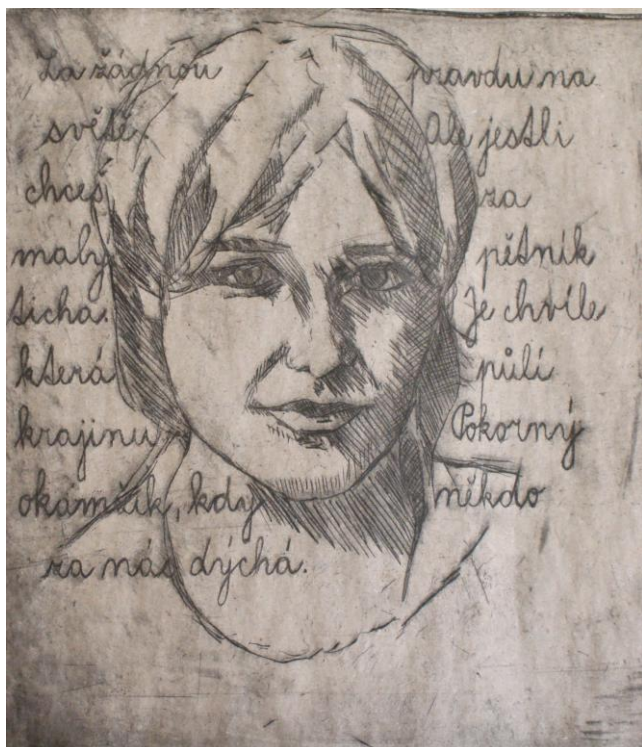 Za žádnou pravdu na
světě. Ale jestli
chceš za
malý pětník
ticha. Je chvíle
která půlí
krajinu Pokorný
okamžik, kdy někdo
za nás dýchá.